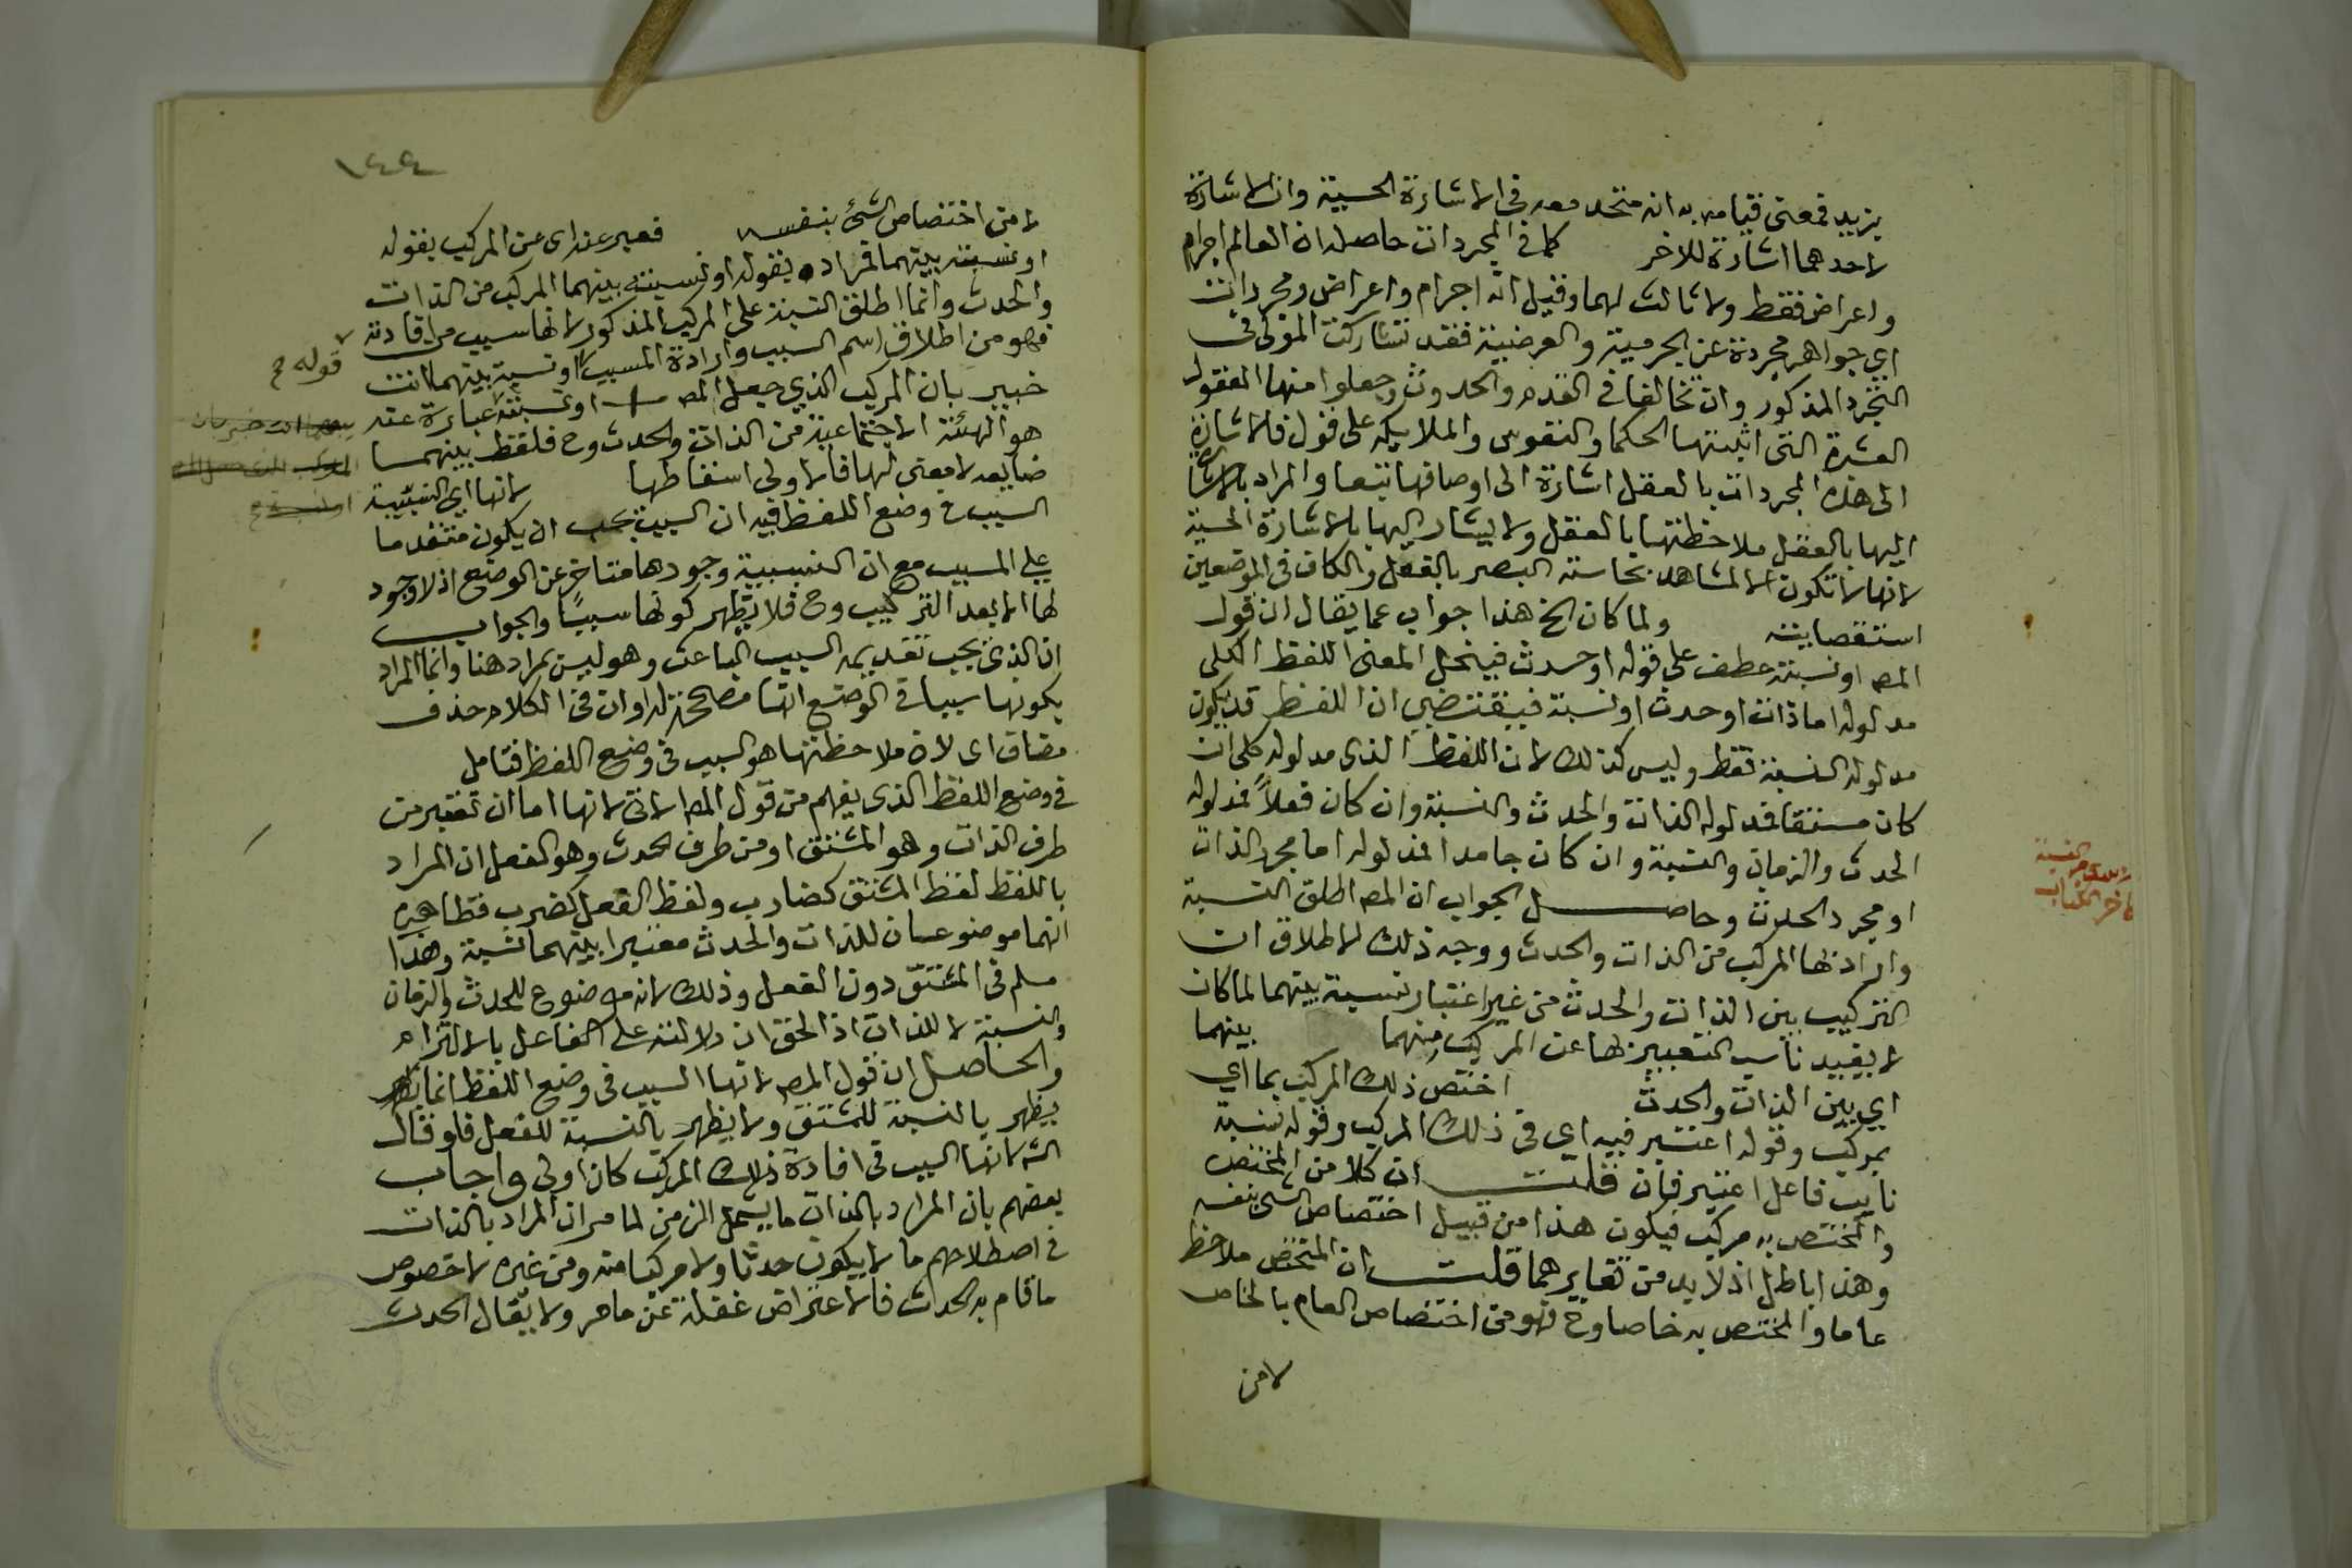 يزيد فمعنى قيامه به انه متحد معه في الاشارة الحسية وان الاشارة
لاحدهما اشارة للاخر كما في المجردات حاصله ان العالم اجرام
واعراض فقط ولا ثالث لهما وقيل انه اجرام واعراض ومجردات
اي جواهر مجردة عن الجرمية والعرضية فقد تشاركت المولى في
التجرد المذكور وان تخالفا في القدم والحدوث وجعلوا منها العقول
العشرة التي اثبتها الحكما والنفوس والملايكه على قول فالاشارة
الى هذه المجردات بالعقل اشارة الى اوصافها تبعا والمراد بالاشارة
اليها بالعقل ملاحظتها بالعقل ولا يشار اليها بالاشارة الحسية
لانها لا تكون الا لمشاهد بحاسة البصر بالفعل والكاف في الموضعين
استقصايية ولما كان الخ هذا جواب عما يقال ان قول
المص او نسبة عطف على قوله او حدث فينحل المعنى اللفظ الكلي
مدلوله اما ذات او حدث او نسبة فيقتضي ان اللفظ قد يكون
مدلوله النسبة فقط وليس كذلك لان اللفظ الذي مدلوله كلي ان
كان مشتقا فمدلوله الذات والحدث والنسبة وان كان فعلاً فمدلوله
الحدث والزمان والنسبة وان كان جامدا فمدلوله اما مجرد الذات
او مجرد الحدث وحاصل الجواب ان المص اطلق النسبة
وارادتها المركب من الذات والحدث ووجه ذلك الاطلاق ان
التركيب بين الذات والحدث من غير اعتبار نسبة بينهما لما كان
لا يفيد ناسب التعبير بها عن المركب منهما بينهما
اي بين الذات والحدث اختص ذلك المركب بما اي
بمركب وقوله اعتبر فيه اي في ذلك المركب وقوله نسبة
نايب فاعل اعتبر فان قلت ان كلا من المختص
والمختص به مركب فيكون هذا من قبيل اختصاص الشي بنفسه
وهذا باطل اذ لا بد من تغايرهما قلت ان المختص ملاحظ
عاما والمختص به خاصا وح فهو من اختصاص العام بالخاص
لا من
لا من اختصاص الشئ بنفسه فعبر عنه اي عن المركب بقوله
او نسبة بينهما فمراده بقوله او نسبة بينهما المركب من الذات
والحدث وانما اطلق النسبة على المركب المذكور لانها سبب في افادته
فهو من اطلاق اسم السبب وارادة المسبب او نسبة بينهما انت
قوله ح
خبير بان المركب الذي جعل المص او نسبة عبارة عنه
هو الهيئة الاجتماعية من الذات والحدث وح فلفظ بينهما
ضايعه لا معنى لها فالاولى اسقاطها لانها اي النسبة
السبب في وضع اللفظ فيه ان السبب يجب ان يكون متقدما
على المسبب مع ان النسبة وجودها متاخر عن الوضع اذ لا وجود
لها الا بعد التركيب وح فلا يظهر كونها سببًا والجواب
ان الذي يجب تقديمه السبب الباعث وهو ليس بمراد هنا وانما المراد
بكونها سببا في الوضع انها مصححة له او ان في الكلام حذف
مضاف اي لان ملاحظتها هو السبب في وضع اللفظ فتامل
في وضع اللفظ الذي يفهم من قول المص الاتي لانها اما ان تعتبر من
طرف الذات وهو المشتق او من طرف الحدث وهو الفعل ان المراد
باللفظ لفظ المشتق كضارب ولفظ الفعل كضرب فظاهره
انهما موضوعان للذات والحدث معتبرا بينهما نسبة وهذا
مسلم في المشتق دون الفعل وذلك لانه موضوع للحدث والزمان
والنسبة لا للذات اذ الحق ان دلالته على الفاعل بالالتزام
والحاصل ان قول المص لانها السبب في وضع اللفظ انما
يظهر بالنسبة للمشتق ولا يظهر بالنسبة للفعل فلو قال
الشه لانها السبب في افادة ذلك المركب كان اولى واجاب
بعضهم بان المراد بالذات ما يشمل الزمن لما مر ان المراد بالذات
في اصطلاحهم ما لا يكون حدثا ولا مركبا منه ومن غيره لا خصوص
ما قام به الحدث فالاعتراض غفلة عن ما مر ولا يقال الحدث